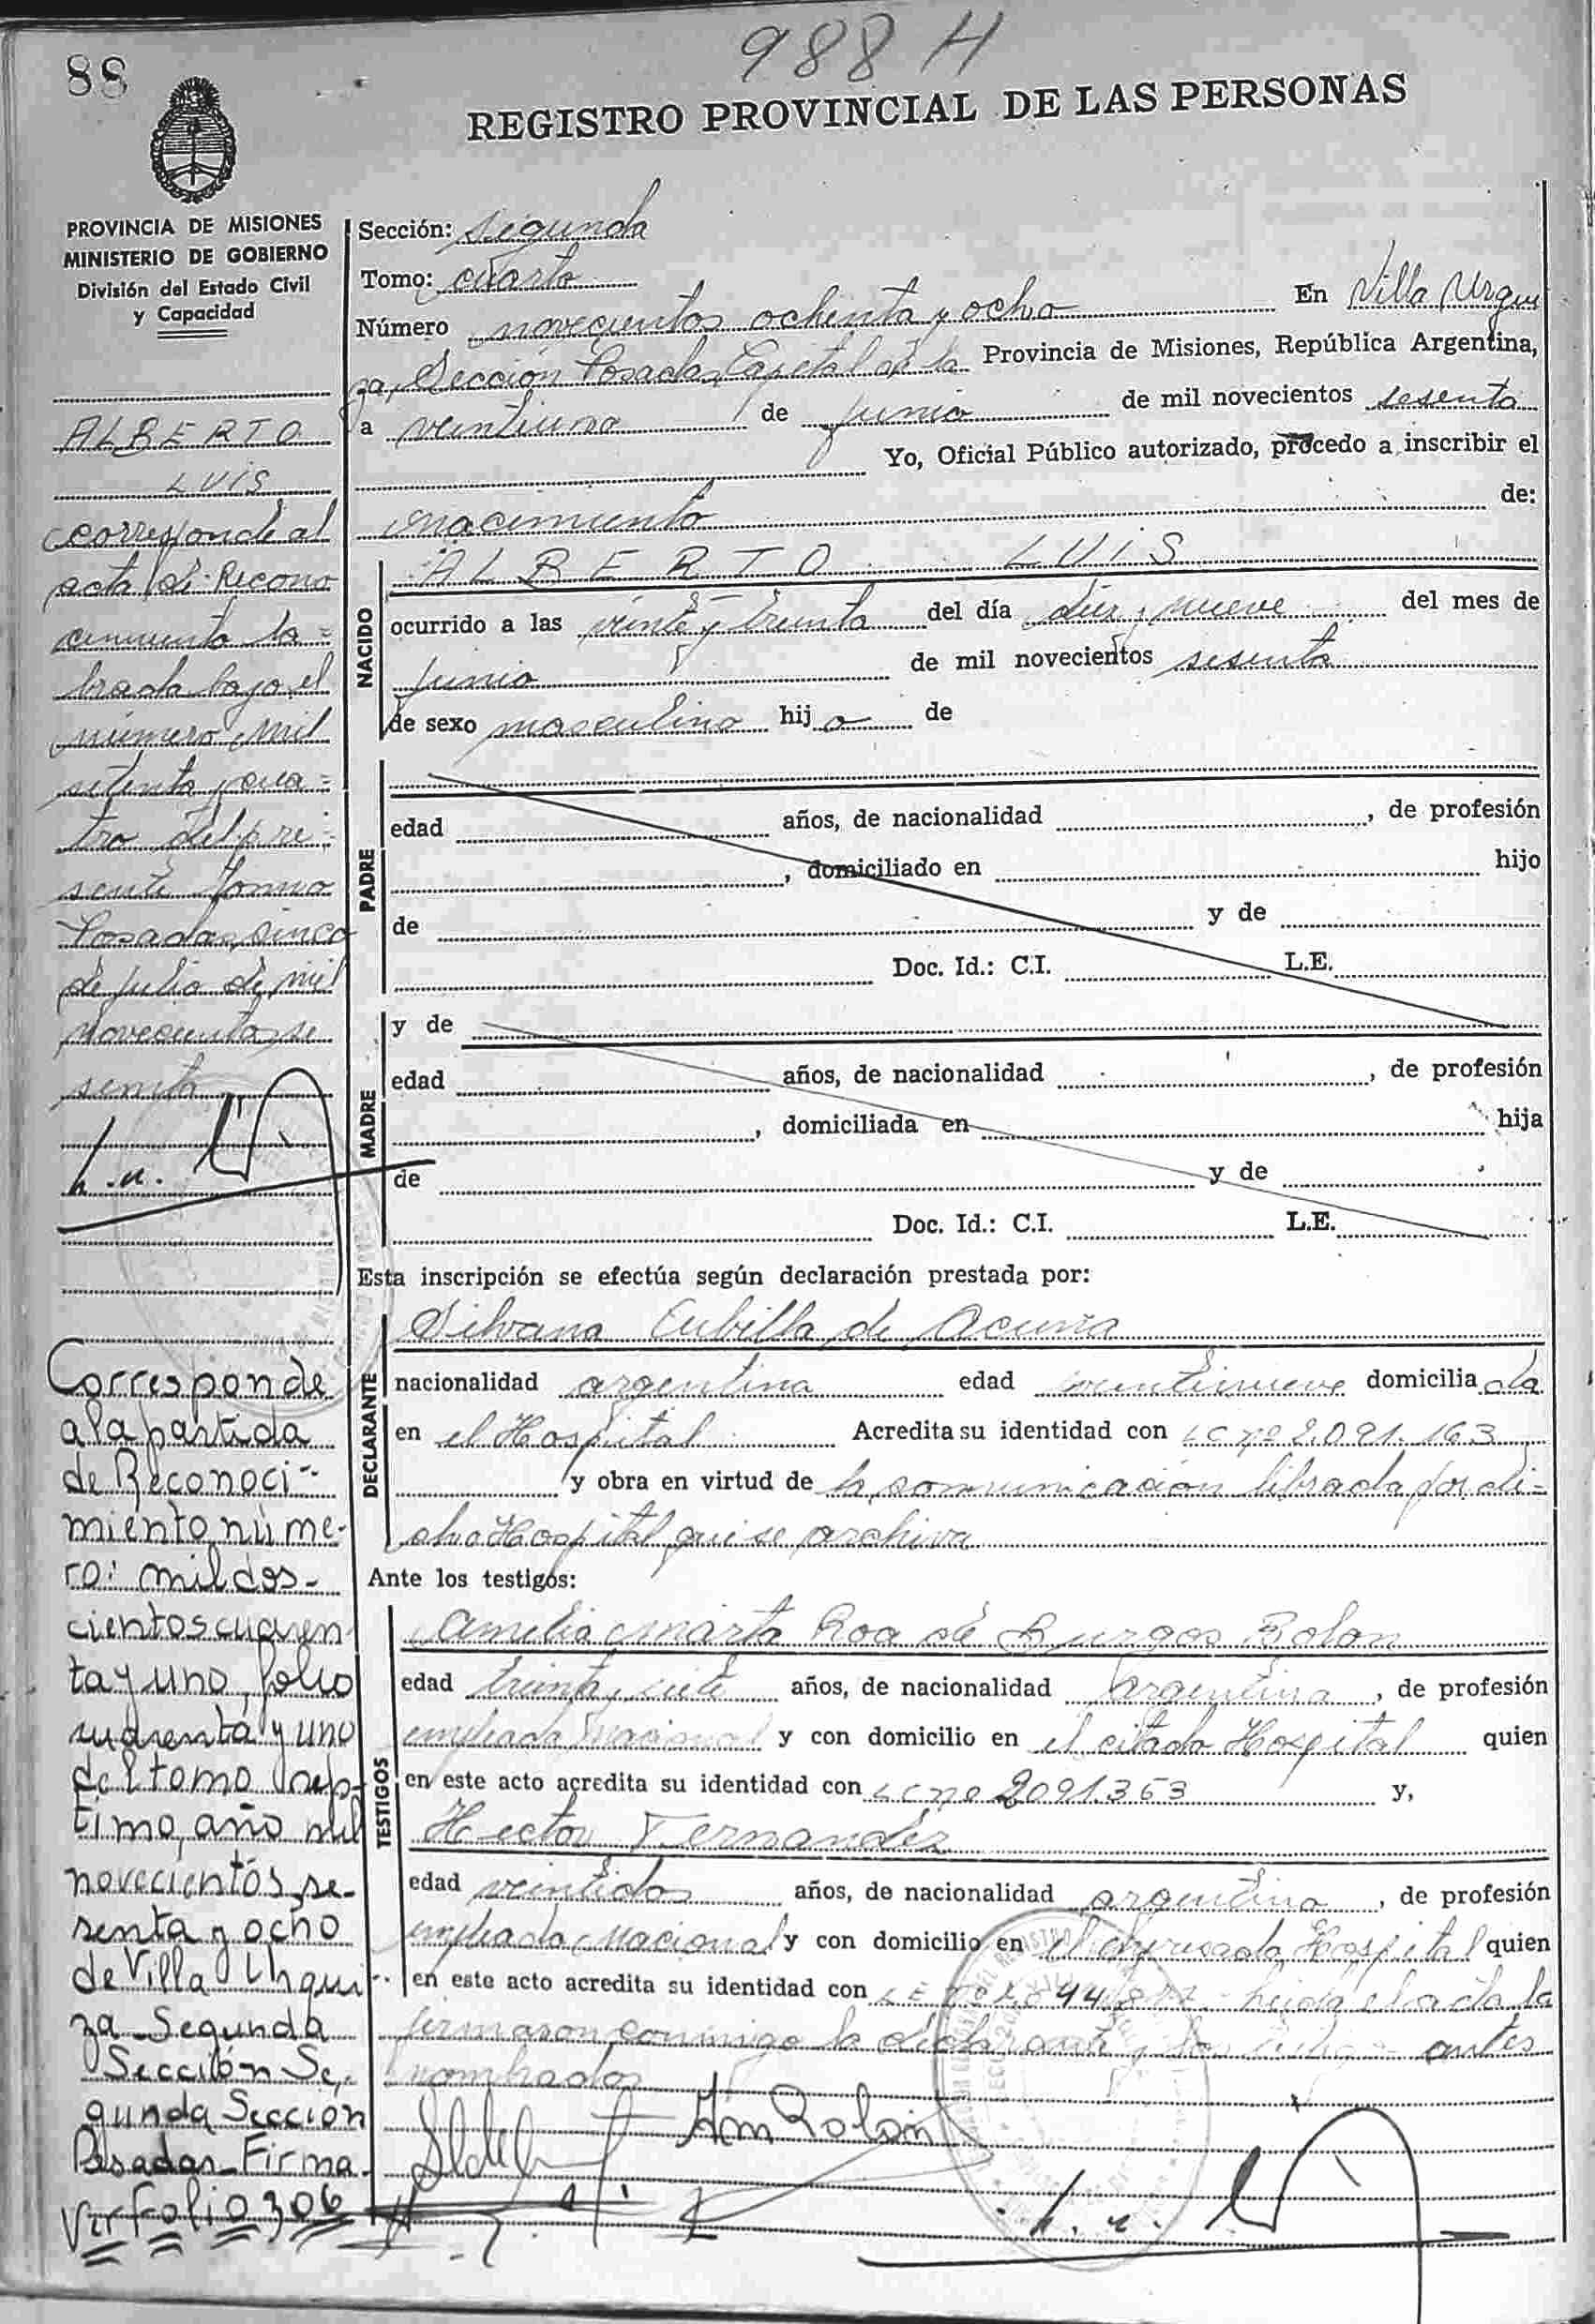 988 H
88
REGISTRO PROVINCIAL DE LAS PERSONAS
PROVINCIA DE MISIONES
MINISTERIO DE GOBIERNO
División del Estado Civil
y Capacidad
ALBERTO
LUIS
corresponde al
acta de Recono
cimiento la=
brada bajo el
número mil
setenta y cua=
tro del pre=
sente tomo
Posadas, cinco
de julio de mil
novecientos se
senta
Corresponde
a la partida
de Reconoci-
miento núme-
ro: mil dos-
cientos cuaren
ta y uno, folio
cuarenta y uno
del tomo sép-
timo, año mil
novecientos se-
senta y ocho
de Villa Urqui-
za Segunda
Sección Se-
gunda Sección
Posadas Firma.
Ver Folio 306
Sección: Segunda
Tomo: cuarto
Número novecientos ochenta y ocho En Villa Urqui
za, Sección Posadas, Capital de la Provincia de Misiones, República Argentina,
a veintiuno de junio de mil novecientos sesenta
Yo, Oficial Público autorizado, procedo a inscribir el
nacimiento de:
NACIDO
ALBERTO LUIS
ocurrido a las veinte y treinta del día diez y nueve del mes de
junio de mil novecientos sesenta
de sexo masculino hijo de
PADRE
edad años, de nacionalidad , de profesión
, domiciliado en hijo
de y de
Doc. Id.: C.I. L.E.
MADRE
y de
edad años, de nacionalidad , de profesión
, domiciliada en hija
de y de
Doc. Id.: C.I. L.E.
Esta inscripción se efectúa según declaración prestada por:
DECLARANTE
Silvana Cubilla de Acuña
nacionalidad argentina edad veintinueve domiciliada
en el Hospital Acredita su identidad con LC nº 2.091.163
y obra en virtud de la comunicación librada por di-
cho Hospital que se archiva
Ante los testigos:
TESTIGOS
Amelia Marta Roa de Burgos Rolon
edad treinta y siete años, de nacionalidad argentina, de profesión
empleada Nacional y con domicilio en el citado Hospital quien
en este acto acredita su identidad con LC nº 2091.353 y,
Hector Fernandez
edad veintidos años, de nacionalidad argentina, de profesión
empleado Nacional y con domicilio en el expresado Hospital quien
en este acto acredita su identidad con LE leida el acta la
firmaron conmigo la declarante y los testigos antes
nombrados
Am Rolon